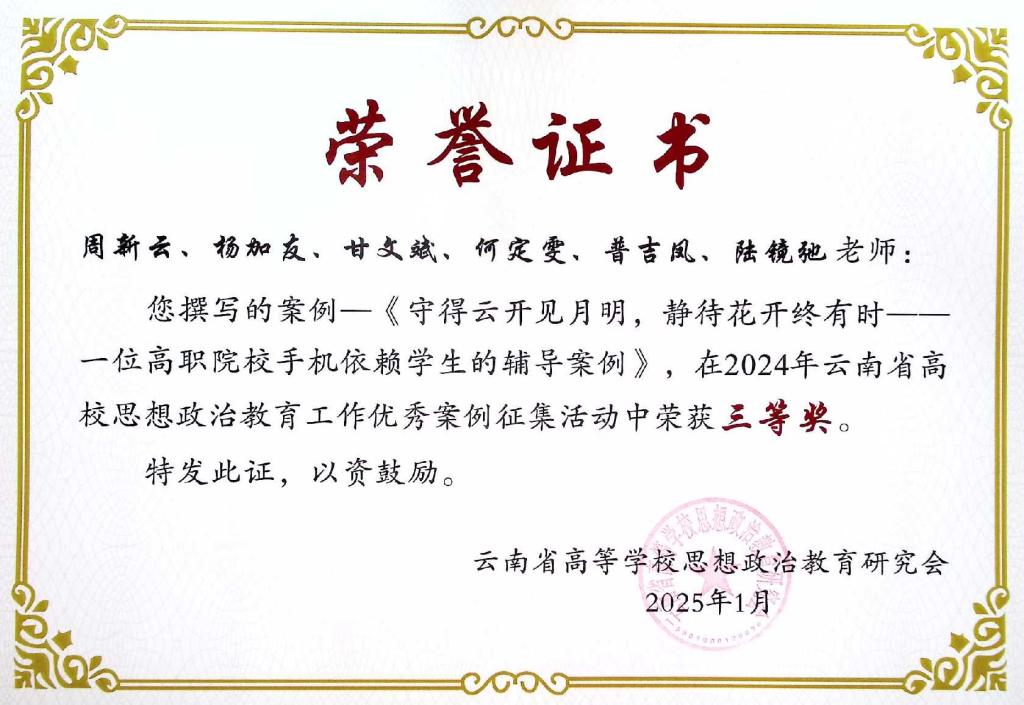 荣誉证书
周新云、杨加友、甘文斌、何定雯、普吉凤、陆镜驰老师：
您撰写的案例—《守得云开见月明，静待花开终有时——
一位高职院校手机依赖学生的辅导案例》，在2024年云南省高
校思想政治教育工作优秀案例征集活动中荣获三等奖。
特发此证，以资鼓励。
云南省高等学校思想政治教育研究会
2025年1月